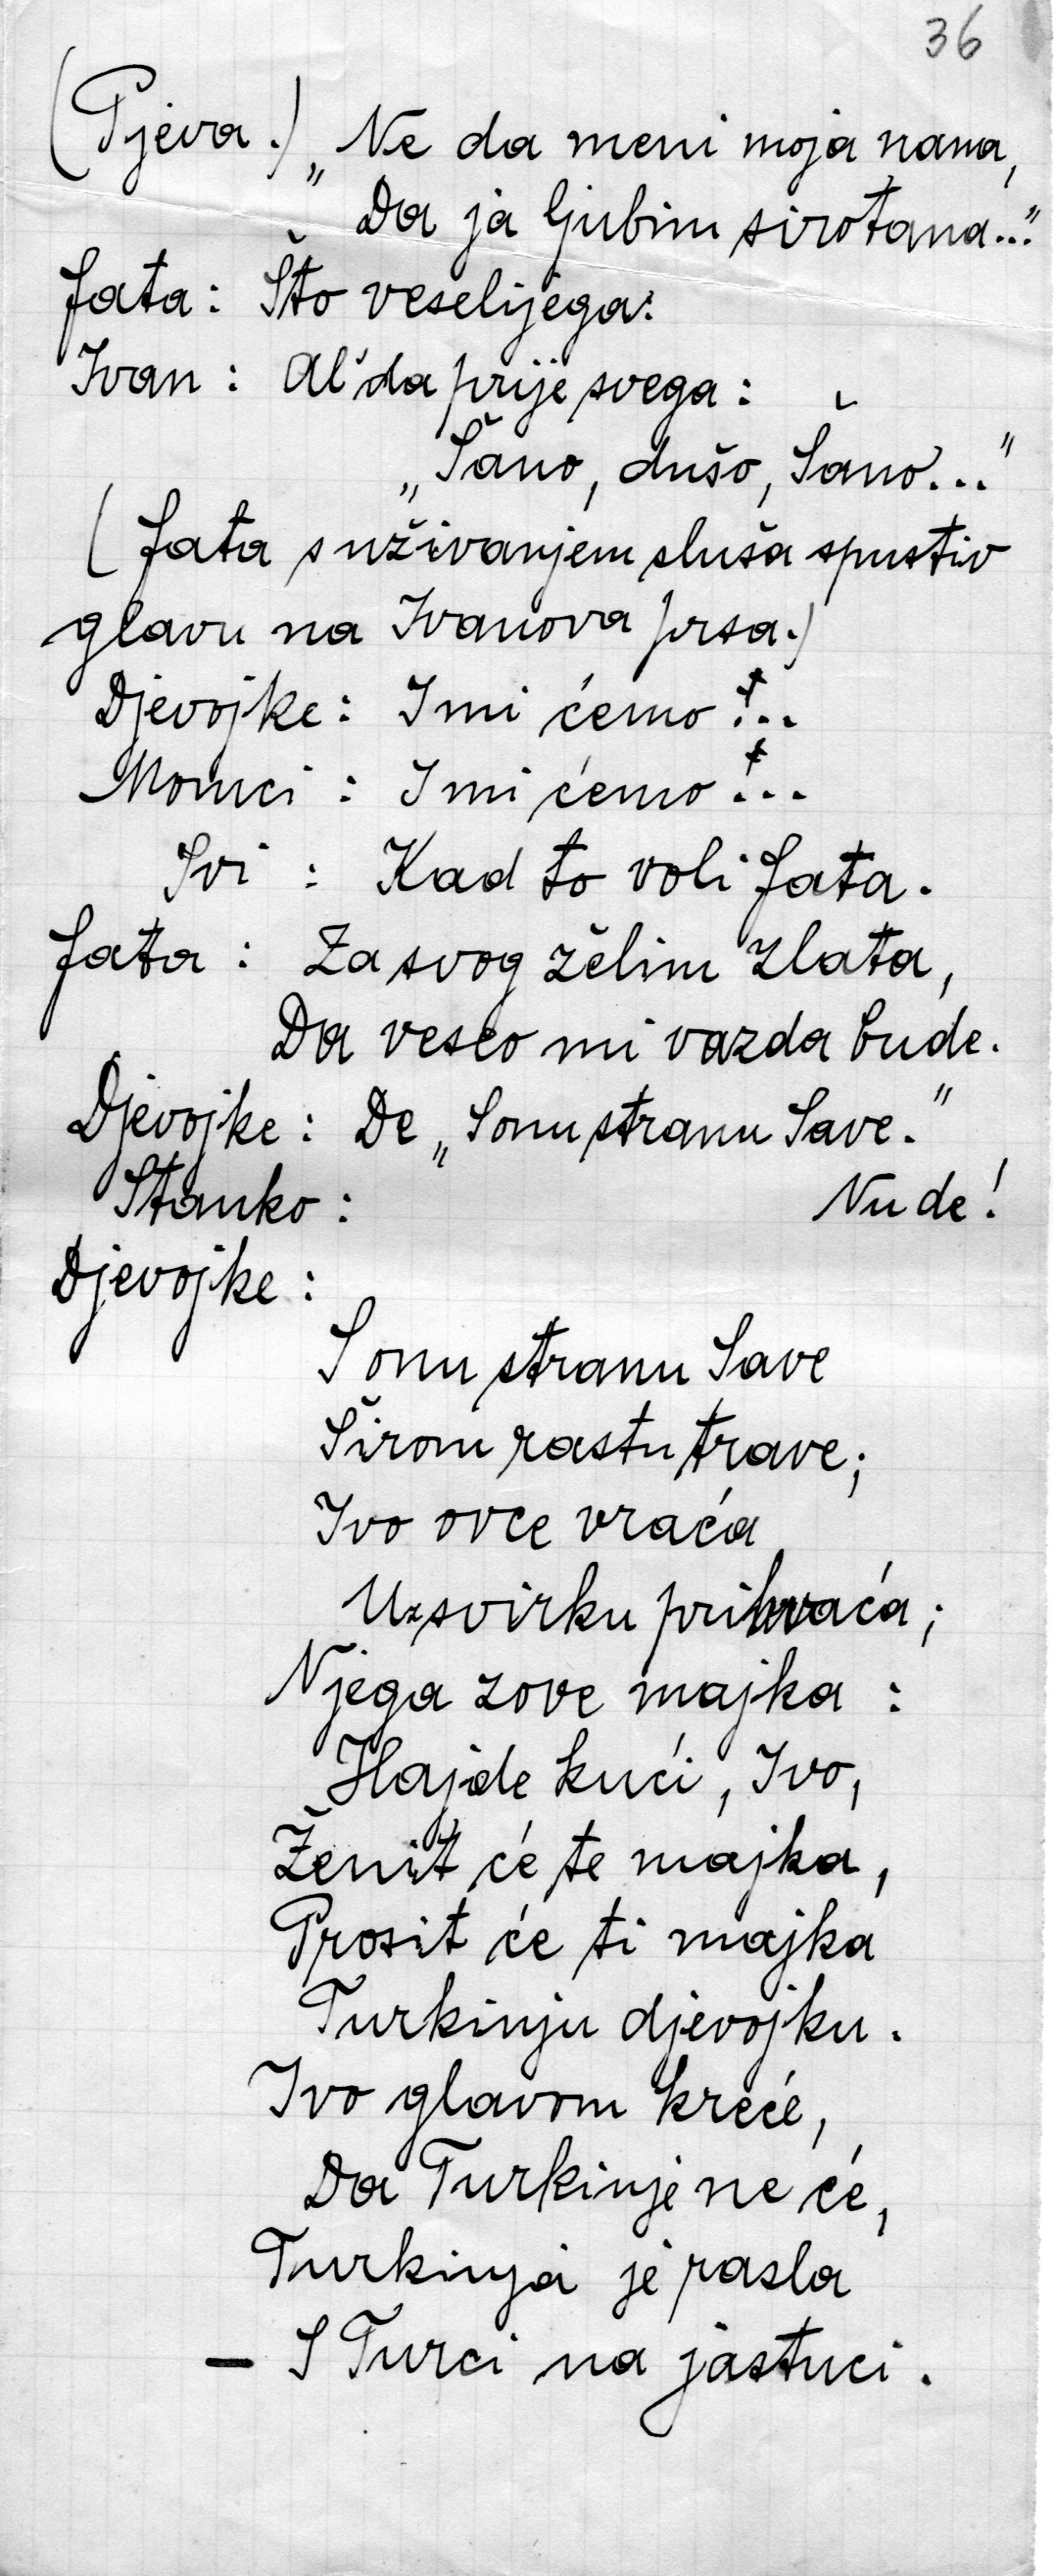 36
(Pjeva.) „Ne da meni moja nana,
Da ja ljubim sirotana...“
Fata: Što veselijega!
Ivan: Al' da prije svega:
„Šano, dušo, Šano...“
(Fata s uživanjem sluša spustiv
glavu na Ivanova prsa.)
Djevojke: I mi ćemo!...
Momci: I mi ćemo!...
Svi: Kad to voli Fata.
Fata: Za svog želim zlata,
Da veseo mi vazda bude.
Djevojke: De „S onu stranu Save.“
Stanko: Nu de!
Djevojke:
S onu stranu Save
Širom rastu trave;
Ivo ovce vraća
Uz svirku prihvaća;
Njega zove majka:
Hajde kući, Ivo,
Ženit će te majka,
Prosit će ti majka
Turkinju djevojku.
Ivo glavom kreće,
Da Turkinje ne će,
Turkinja je rasla
– S Turci na jastuci.